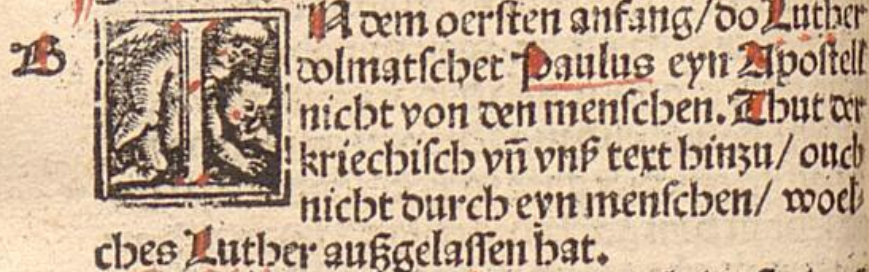 B
IN dem oersten anfang/do Luther
dolmatschet Paulus eyn Apostell
nicht von den menschen. Thut der
kriechisch vñ vnß text hinzu/ ouch
nicht durch eyn menschen/ woel-
ches Luther außgelassen hat.